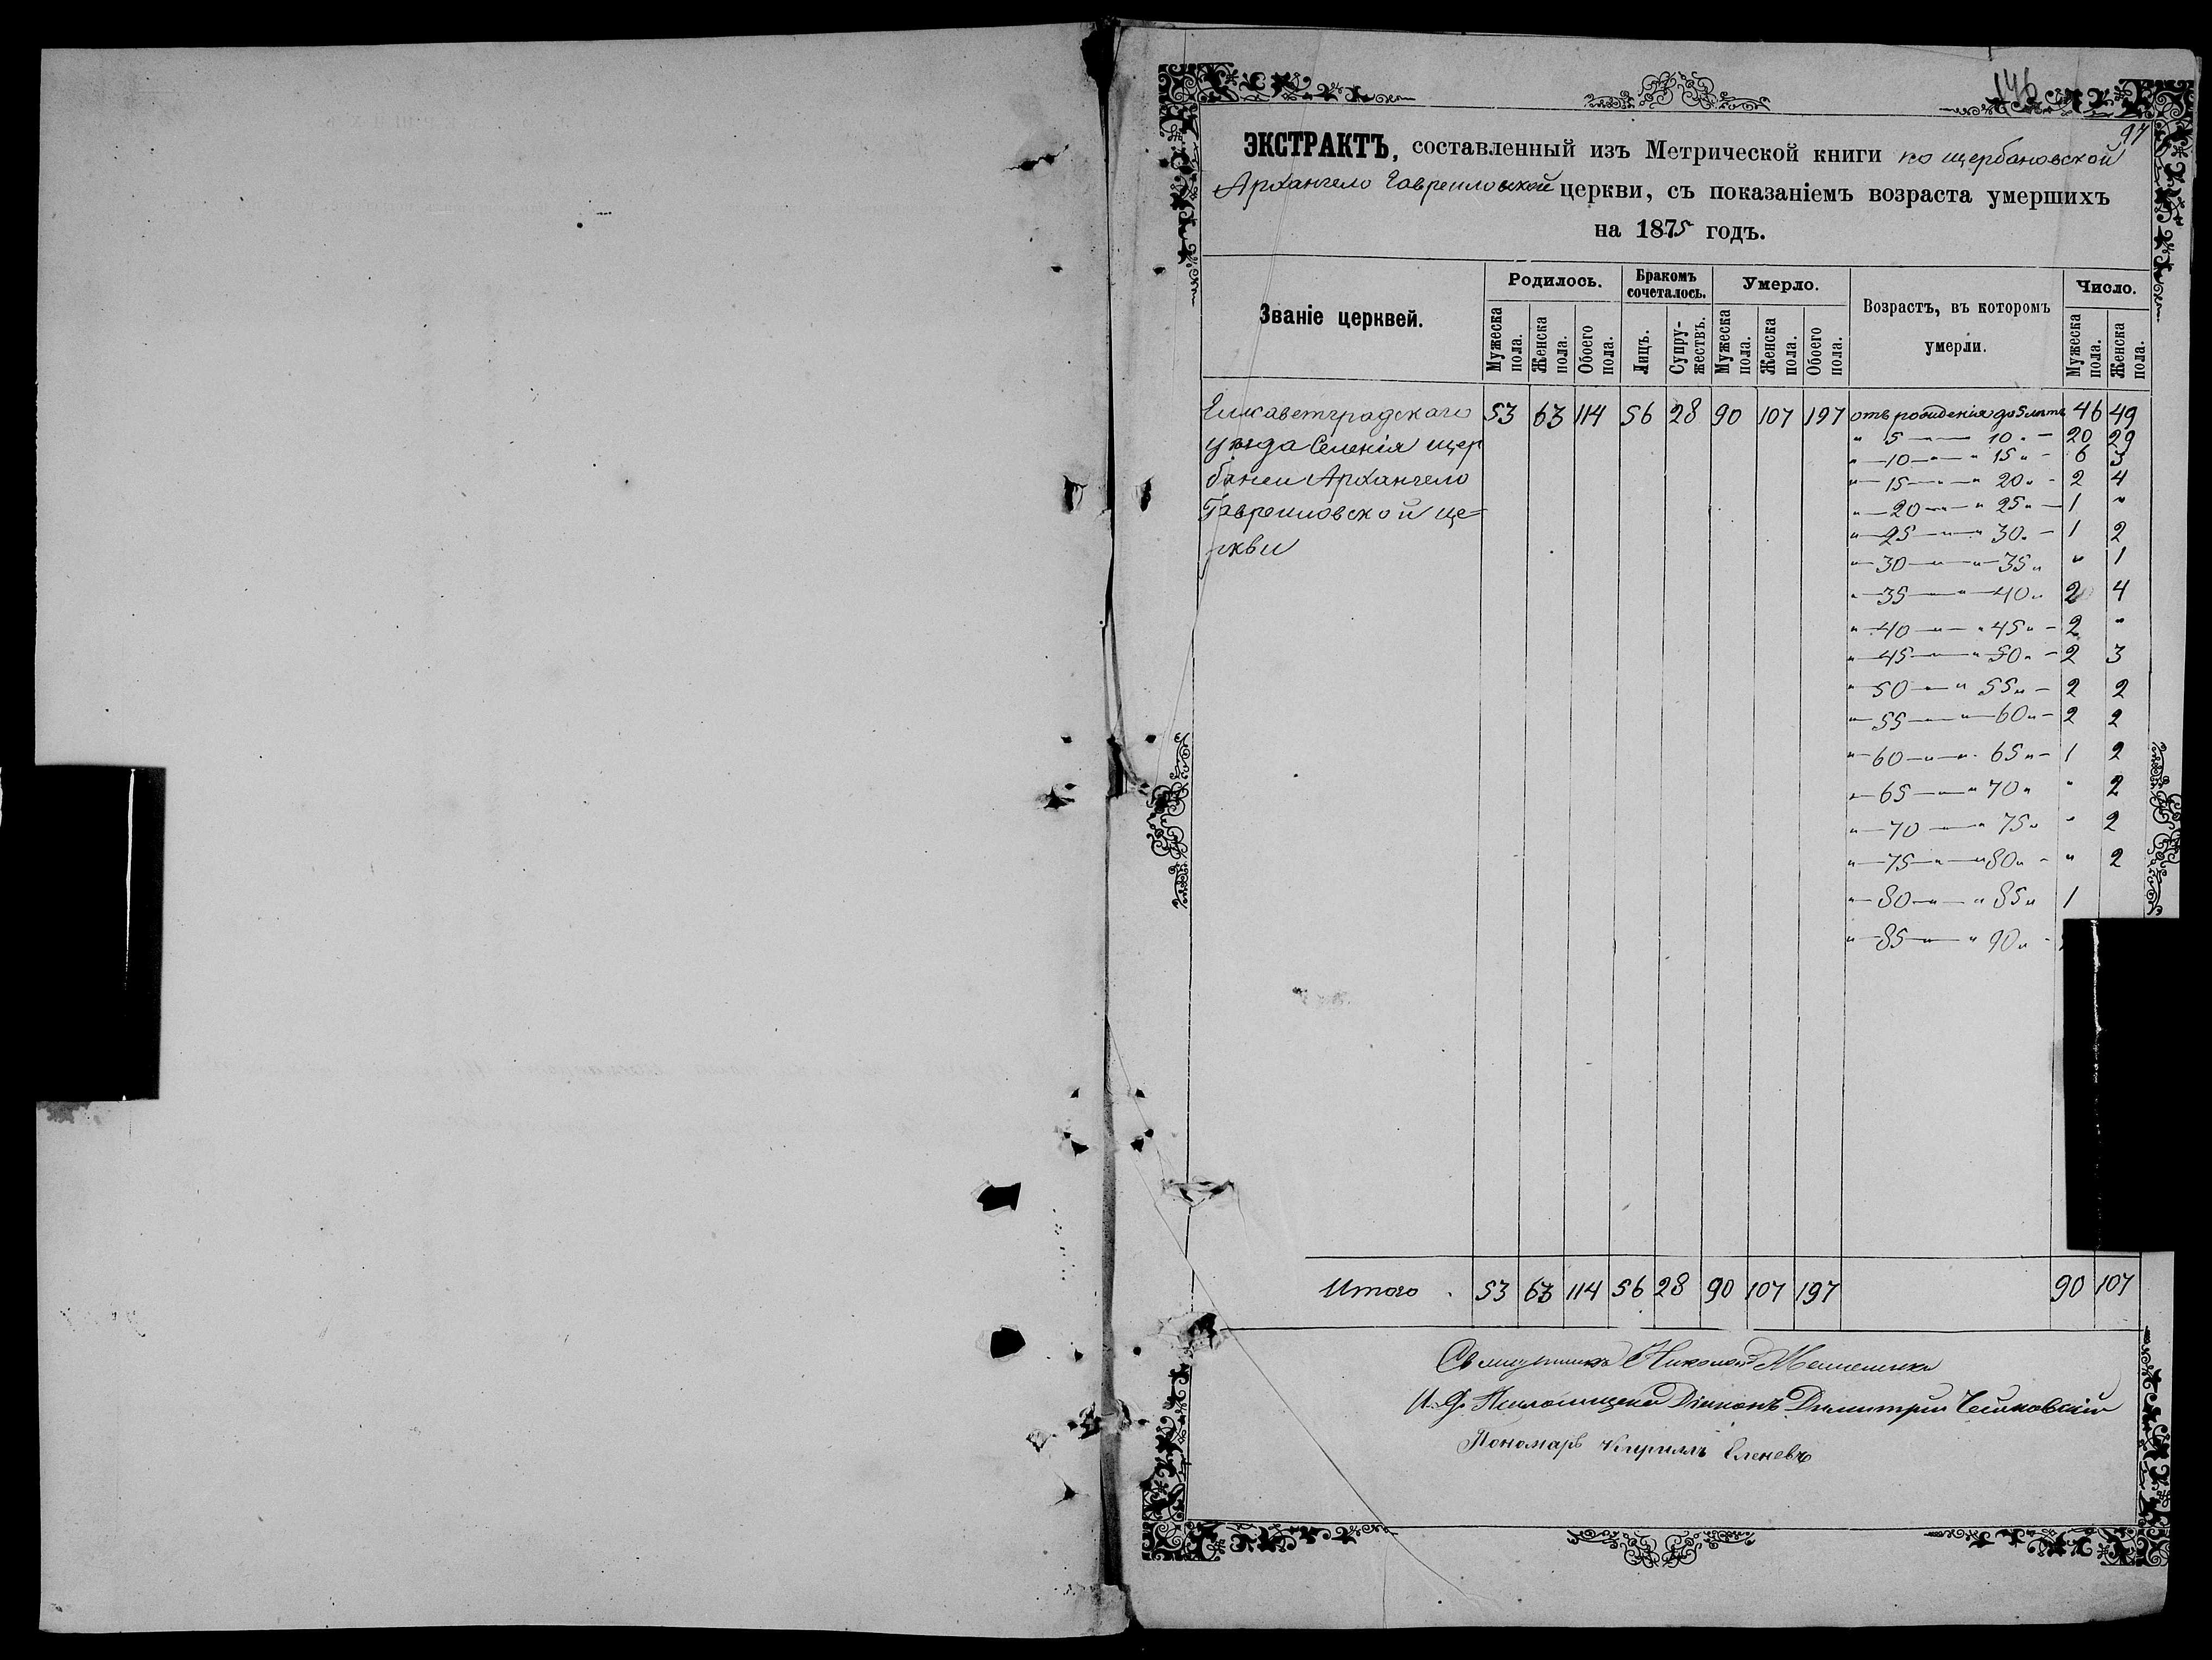 146
97
ЭКСТРАКТЪ, составленный изъ Метрической книги по щербановской
Архангело Гавреиловской церкви, съ показаніемъ возраста умершихъ
на 1875 годъ.
Званіе церквей.
Родилось.
Бракомъ сочеталось.
Умерло.
Возрастъ, въ которомъ умерли.
Число.
Мужеска пола.
Женска пола.
Обоего пола.
Лицъ.
Супру-жествъ.
Мужеска пола.
Женска пола.
Обоего пола.
Мужеска пола.
Женска пола.
Елисаветградскаго 53 63 114 56 28 90 107 197 отъ рожденія до 5 лѣтъ 46 49
уѣзда Селенія щер
банеи Архангело
Гавреиловской це=
ркви
" 5 — " 10 " — 20 29
" 10 — " 15 " — 6 3
" 15 — " 20 " — 2 4
" 20 — " 25 " — 1 "
" 25 — " 30 " — 1 2
" 30 — " 35 " " 1
" 35 — " 40 " 2 4
" 40 — " 45 " — 2 "
" 45 — " 50 " — 2 3
" 50 — " 55 " — 2 2
" 55 — " 60 " — 2 2
" 60 — " 65 " — 1 2
" 65 — " 70 " " 2
" 70 — " 75 " " 2
" 75 — " 80 " — " 2
" 80 — " 85 " 1
" 85 — " 90 " —
Итого . 53 63 114 56 28 90 107 197 90 107
Священникъ Николай
И. Д. Псаломщика Діаконъ Димитрій
Пономарь Кириллъ Еленевъ